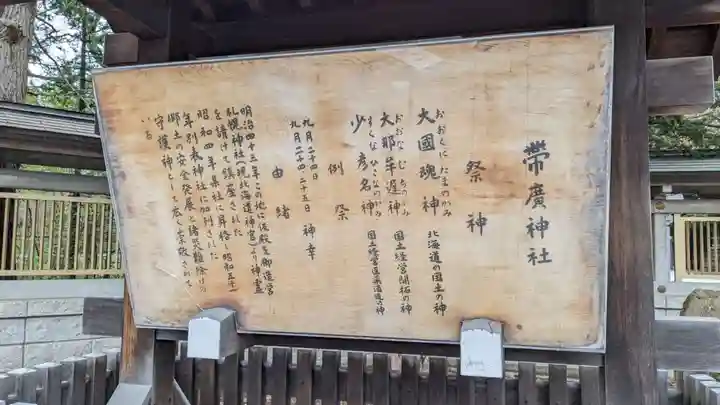 帯廣神社
祭神
おおくにたまのかみ
大國魂神 北海道の国土の神
おおなむちのかみ
大那牟遅神 国土経営開拓の神
すくなひこなのかみ
少彦名神 国土経営医薬酒造の神
例祭
九月二十四日
九月二十四、二十五日 神幸
由緒
明治四十三年この地に仮殿を御造営
札幌神社(現北海道神宮)より神霊
を請けて鎮座された
昭和四年県社に昇格、昭和五十一
年別表神社に加列された
郷土の安全発展と諸災難除けの
守護神として広く崇敬されて
いる